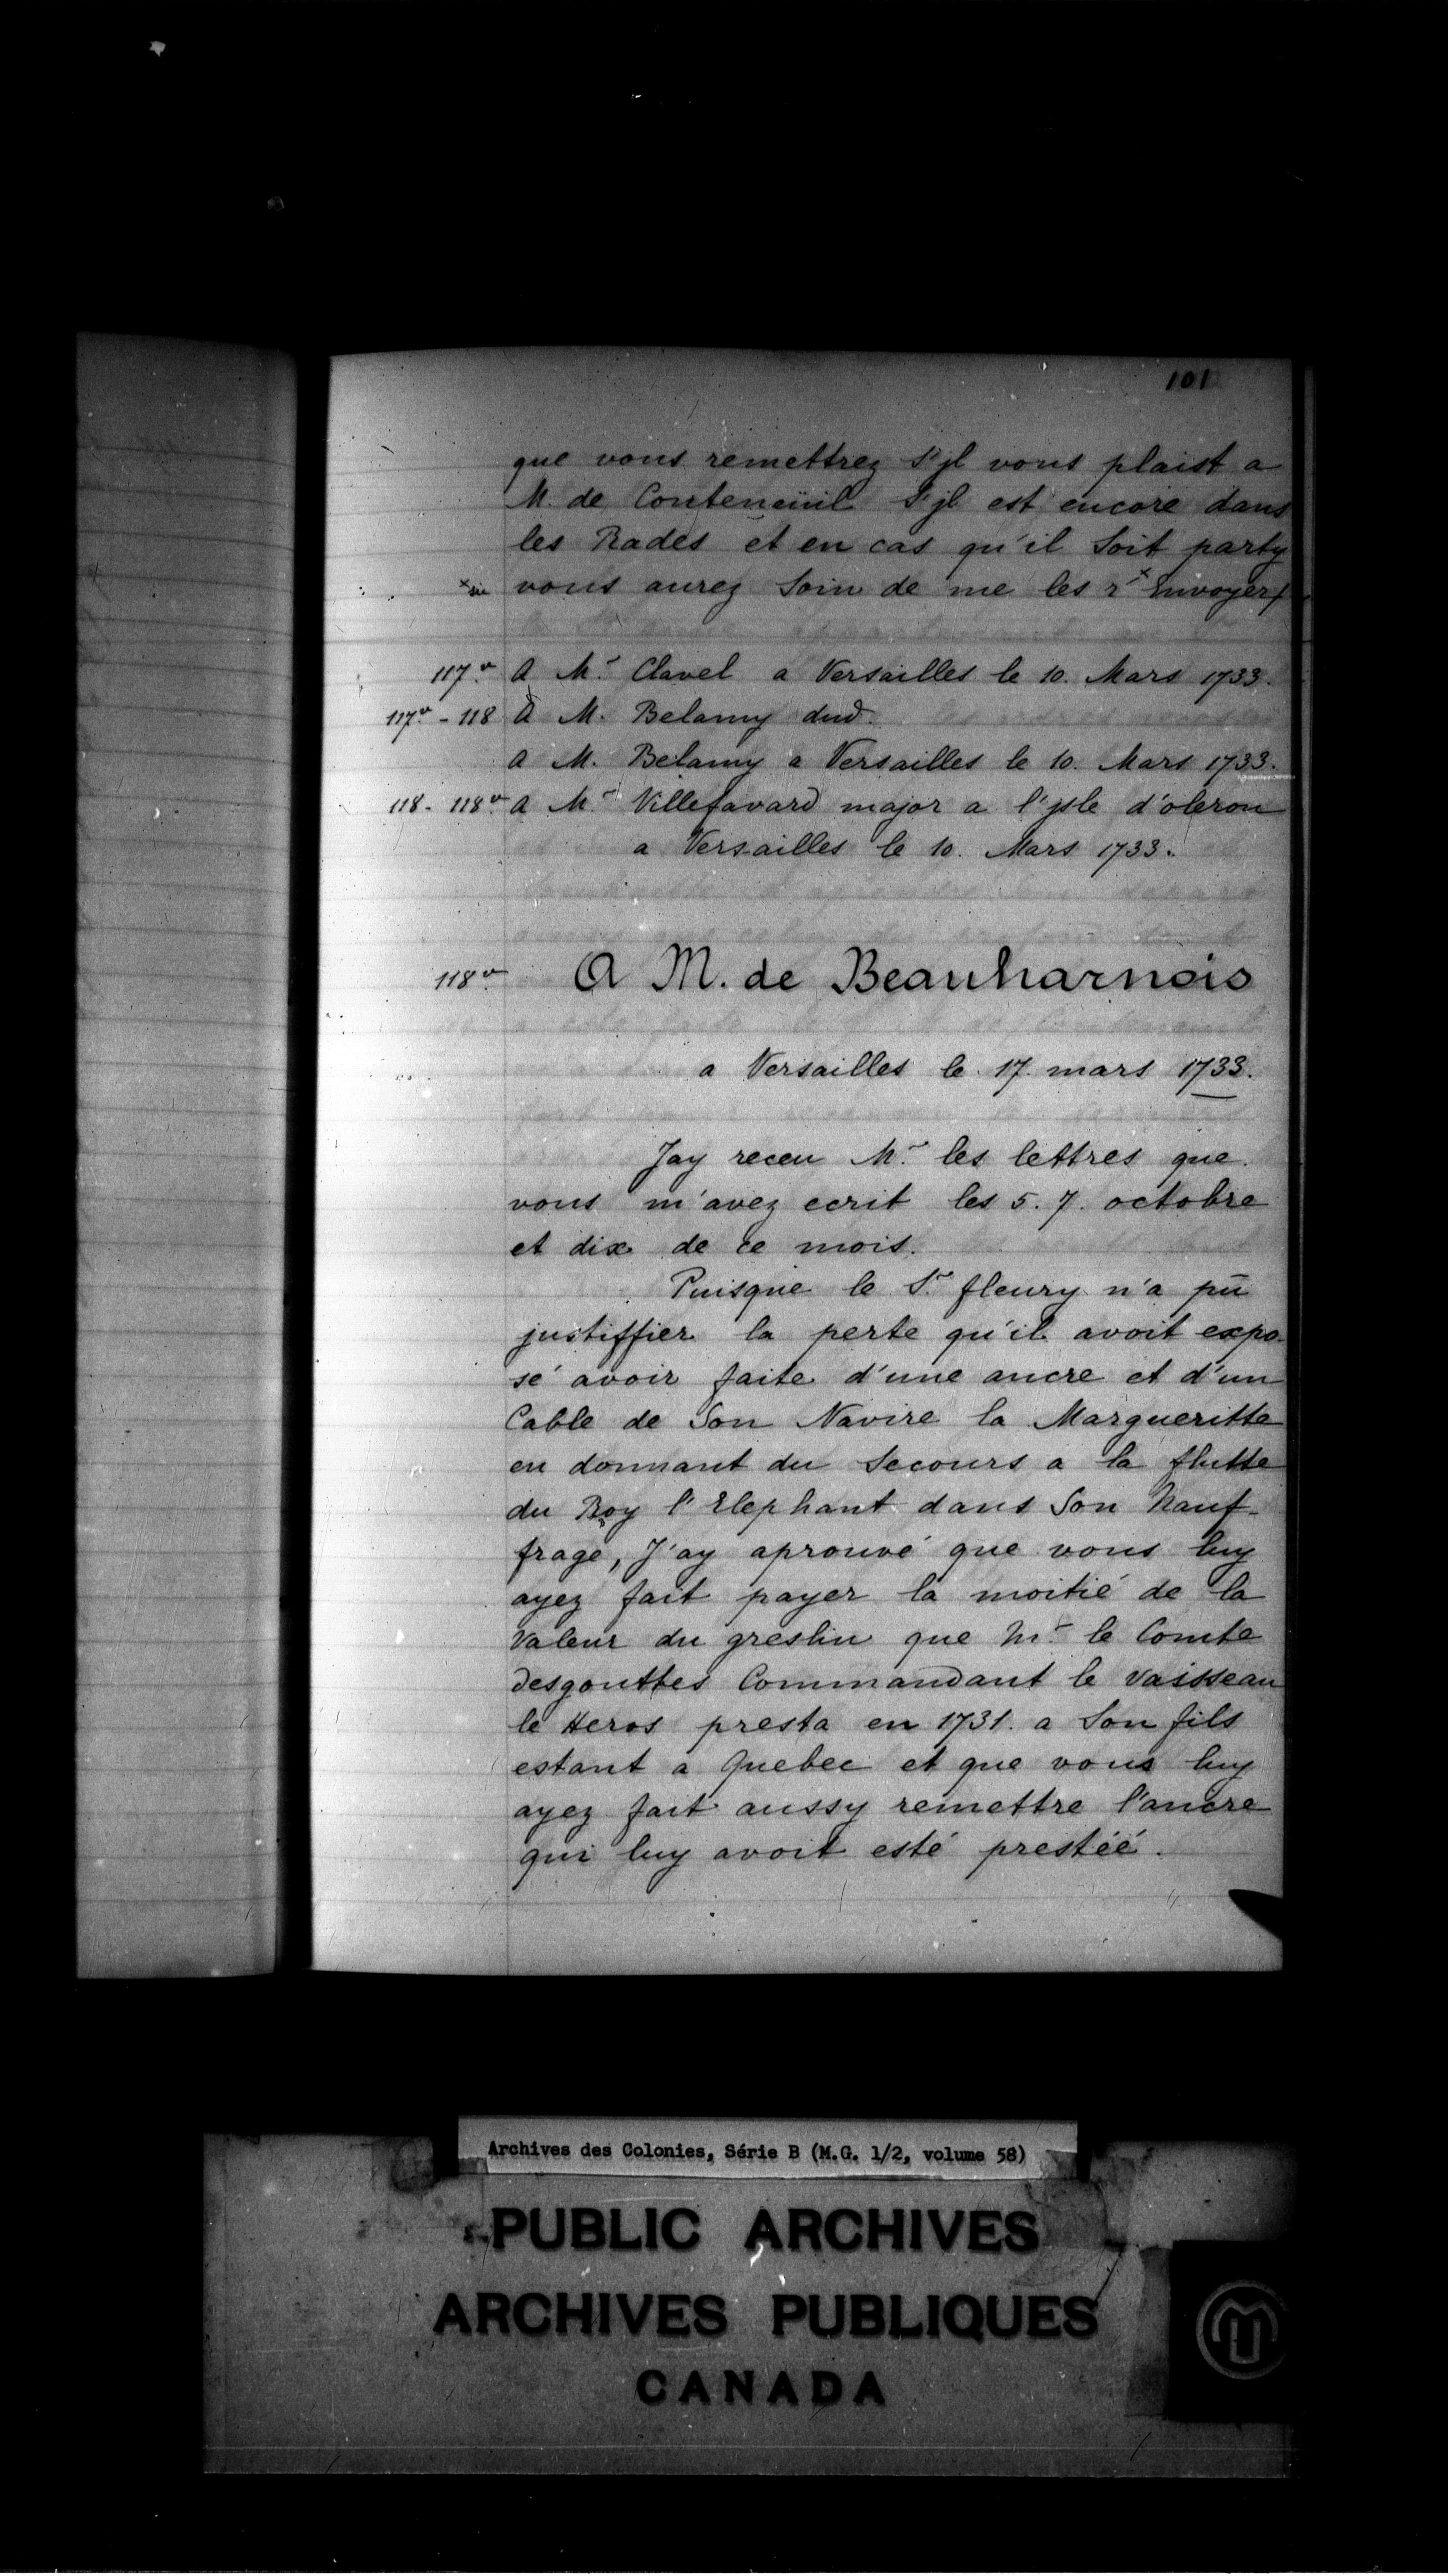 101
que vous remettrez S'jl vous plaist a
M. de Conteneüil S'jl est encore dans
les Rades et en cas qu'il Soit party
vous aurez Soin de me les r'Envoyer
117v A Mr Clavel a Versailles le 10. Mars 1733.
117v - 118 A M. Belamy dud.
A M. Belamy a Versailles le 10. Mars 1733.
118 - 118v A Mr Villefavard major a l'jsle d'oleron
a Versailles le 10. Mars 1733.
118v A M. de Beauharnois
a Versailles le 17. mars 1733.
Jay receu Mr les lettres que
vous m'avez ecrit les 5. 7. octobre
et dix de ce mois.
Puisque le Sr fleury n'a pû
justiffier la perte qu'il avoit expo-
sé avoir faite d'une ancre et d'un
Cable de Son Navire la Margueritte
en donnant du Secours a la flutte
du Roy l'Elephant dans Son Nauf-
frage, J'ay aprouvé que vous luy
ayez fait payer la moitié de la
valeur du greslin que Mr le Comte
desgouttes Commandant le vaisseau
le Heros presta en 1731. a Son fils
estant a Quebec et que vous luy
ayez fait aussy remettre l'ancre
qui luy avoit esté prestéé.
Archives des Colonies, Série B (M.G. 1/2, volume 58)
PUBLIC ARCHIVES
ARCHIVES PUBLIQUES
CANADA